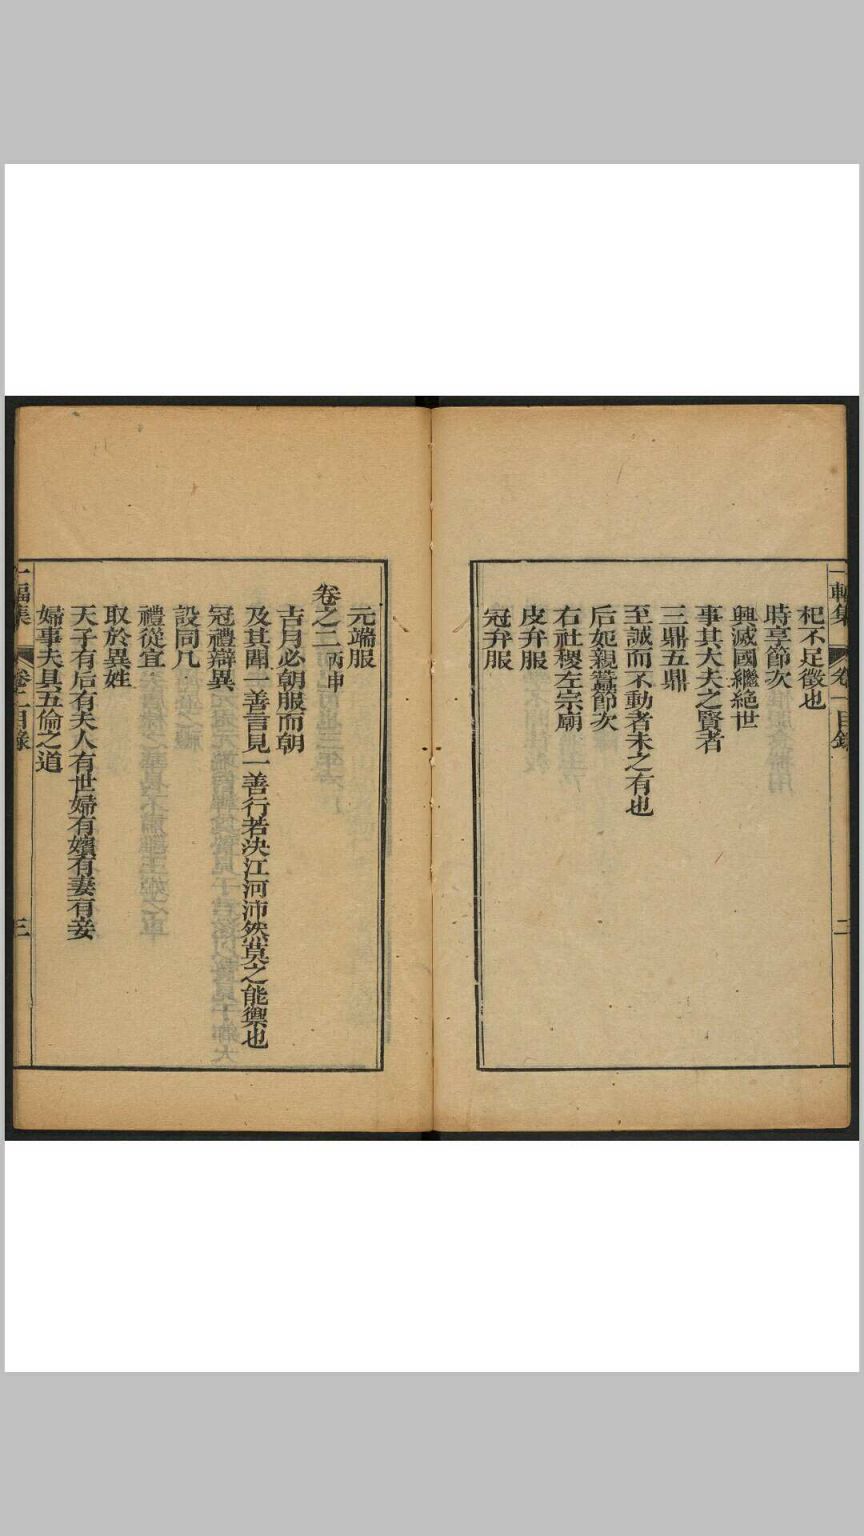 杞不足徵也
時享節次
興滅國繼絕世
事其大夫之賢者
三鼎五鼎
至誠而不動者未之有也
后妃親蠶節次
右社稷左宗廟
皮弁服
冠弁服
元端服
卷之二丙申
吉月必朝服而朝
及其聞一善言見一善行若决江河沛然莫之能禦也
冠禮辯異
設同几
禮從宜
取於異姓
天子有后有夫人有世婦有嬪有妻有妾
婦事夫具五倫之道
一輻集 卷二目錄 三